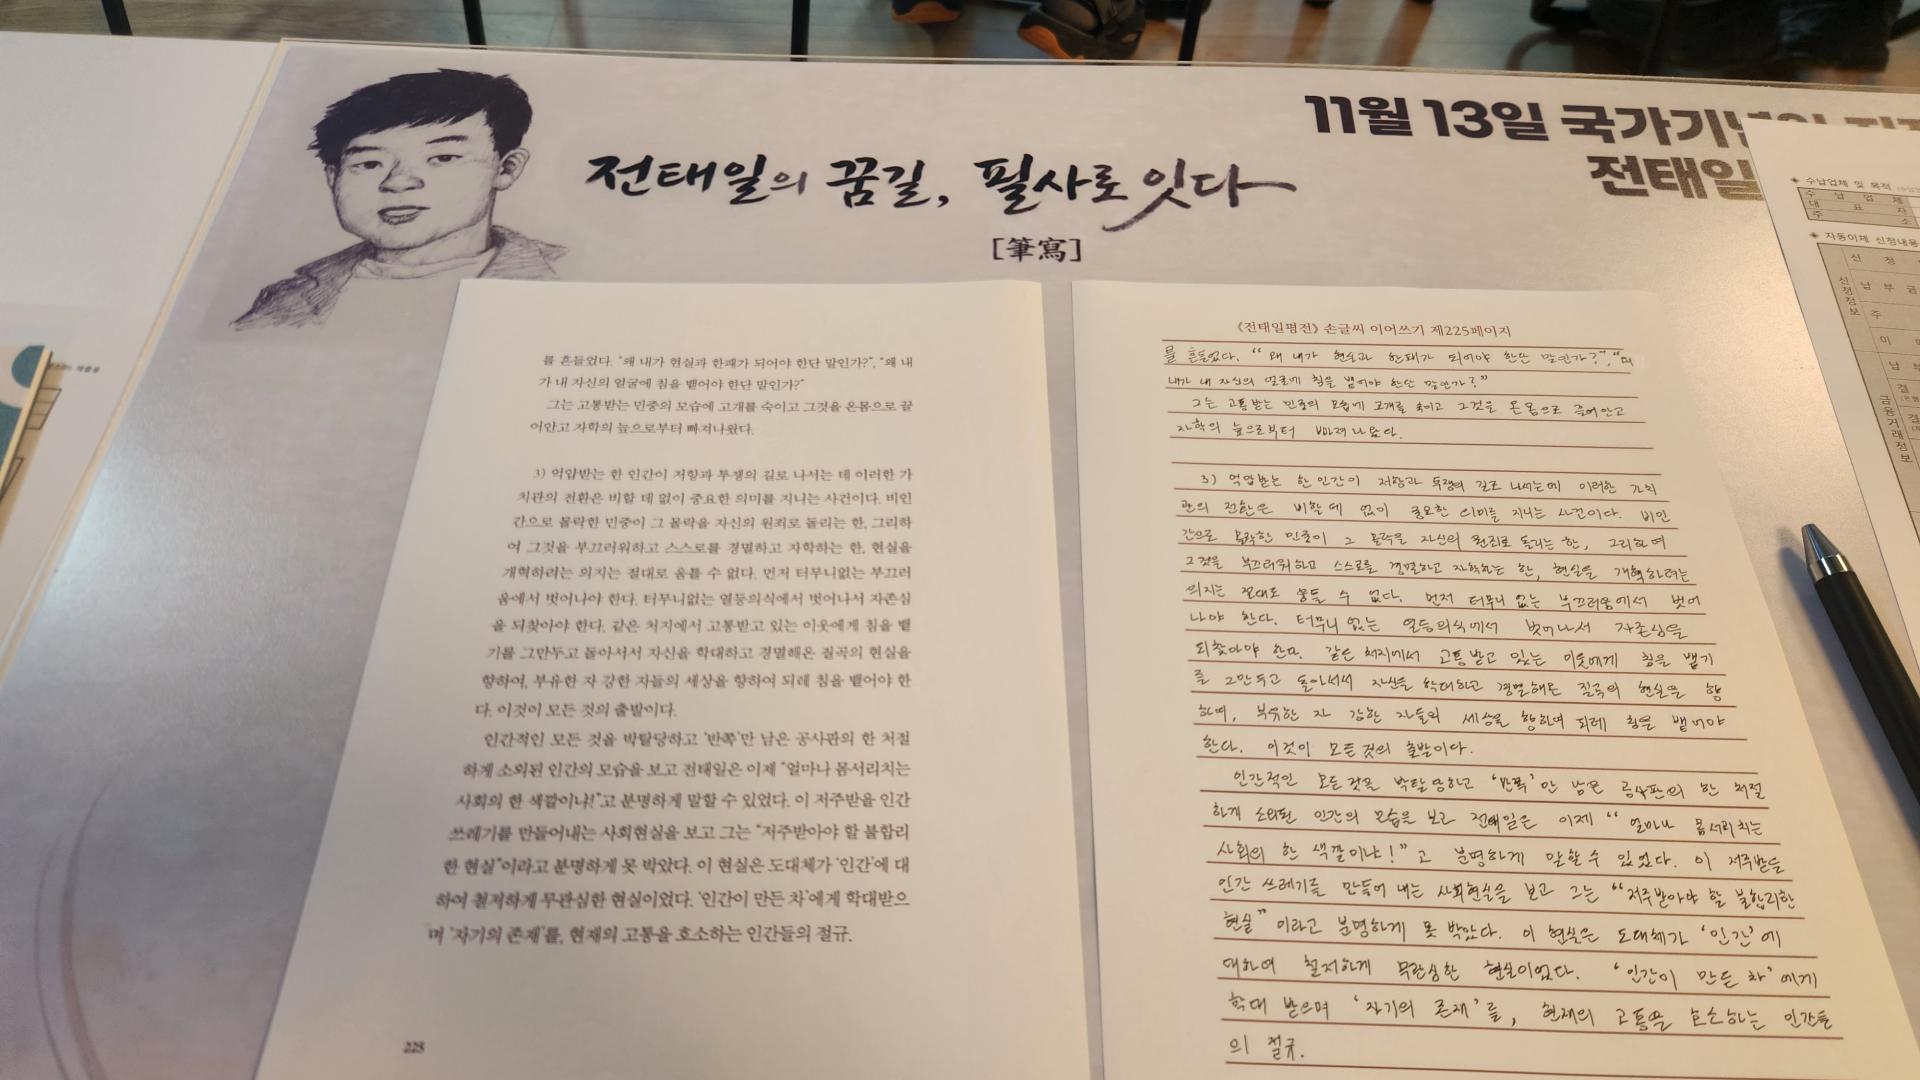 11월 13일 국가기념일
전태일
전태일의 꿈길, 필사로 잇다
[筆寫]
를 흔들었다. "왜 내가 현실과 한패가 되어야 한단 말인가?", "왜 내
가 내 자신의 얼굴에 침을 뱉어야 한단 말인가?"
그는 고통받는 민중의 모습에 고개를 숙이고 그것을 온몸으로 끌
어안고 자학의 늪으로부터 빠져나왔다.
3) 억압받는 한 인간이 저항과 투쟁의 길로 나서는 데 이러한 가
치관의 전환은 비할 데 없이 중요한 의미를 지니는 사건이다. 비인
간으로 몰락한 민중이 그 몰락을 자신의 원죄로 돌리는 한, 그리하
여 그것을 부끄러워하고 스스로를 경멸하고 자학하는 한, 현실을
개혁하려는 의지는 절대로 움틀 수 없다. 먼저 터무니없는 부끄러
움에서 벗어나야 한다. 터무니없는 열등의식에서 벗어나서 자존심
을 되찾아야 한다. 같은 처지에서 고통받고 있는 이웃에게 침을 뱉
기를 그만두고 돌아서서 자신을 학대하고 경멸해온 질곡의 현실을
향하여, 부유한 자 강한 자들의 세상을 향하여 되레 침을 뱉어야 한
다. 이것이 모든 것의 출발이다.
인간적인 모든 것을 박탈당하고 '반쪽'만 남은 공사판의 한 처절
하게 소외된 인간의 모습을 보고 전태일은 이제 "얼마나 몸서리치는
사회의 한 색깔이냐!"고 분명하게 말할 수 있었다. 이 저주받을 인간
쓰레기를 만들어내는 사회현실을 보고 그는 "저주받아야 할 불합리
한 현실"이라고 분명하게 못 박았다. 이 현실은 도대체가 '인간'에 대
하여 철저하게 무관심한 현실이었다. '인간이 만든 차'에게 학대받으
며 '자기의 존재'를, 현재의 고통을 호소하는 인간들의 절규.
225
《전태일평전》 손글씨 이어쓰기 제225페이지
를 흔들었다. "왜 내가 현실과 한패가 되어야 한단 말인가?", "왜
내가 내 자신의 얼굴에 침을 뱉어야 한단 말인가?"
그는 고통받는 민중의 모습에 고개를 숙이고 그것을 온몸으로 끌어안고
자학의 늪으로부터 빠져나왔다.
3) 억압받는 한 인간이 저항과 투쟁의 길로 나서는데 이러한 가치
관의 전환은 비할 데 없이 중요한 의미를 지니는 사건이다. 비인
간으로 몰락한 민중이 그 몰락을 자신의 원죄로 돌리는 한, 그리하여
그것을 부끄러워하고 스스로를 경멸하고 자학하는 한, 현실을 개혁하려는
의지는 절대로 움틀 수 없다. 먼저 터무니 없는 부끄러움에서 벗어
나야 한다. 터무니 없는 열등의식에서 벗어나서 자존심을
되찾아야 한다. 같은 처지에서 고통받고 있는 이웃에게 침을 뱉기
를 그만두고 돌아서서 자신을 학대하고 경멸해온 질곡의 현실을 향
하여, 부유한 자 강한 자들의 세상을 향하여 되레 침을 뱉어야
한다. 이것이 모든 것의 출발이다.
인간적인 모든 것을 박탈당하고 '반쪽'만 남은 공사판의 한 처절
하게 소외된 인간의 모습을 보고 전태일은 이제 "얼마나 몸서리치는
사회의 한 색깔이냐!"고 분명하게 말할 수 있었다. 이 저주받을
인간 쓰레기를 만들어 내는 사회현실을 보고 그는 "저주받아야 할 불합리한
현실"이라고 분명하게 못 박았다. 이 현실은 도대체가 '인간'에
대하여 철저하게 무관심한 현실이었다. '인간이 만든 차'에게
학대 받으며 '자기의 존재'를, 현재의 고통을 호소하는 인간들
의 절규.
수납업체 및 목적
수 납 업 체
대 표 자
주 소
자동이체 신청내용
신청정보
금융거래정보